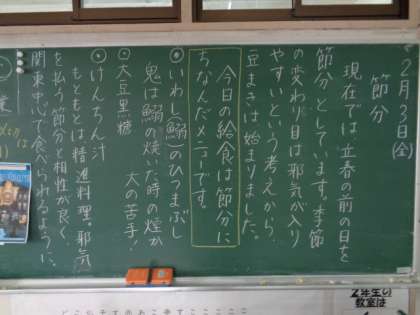 2月3日(金)
節分
現在では、立春の前の日を
節分としています。季節
の変わり目は邪気が入り
やすいという考えから、
豆まきは始まりました。
今日の給食は節分に
ちなんだメニューです。
◎いわし(鰯)のひつまぶし
鬼は鰯の焼いた時の煙が
大の苦手!
○大豆黒糖
○けんちん汁
もともとは精進料理。邪気
を払う節分と相性が良く、
関東中心で食べられるように。
2年生の
教室は